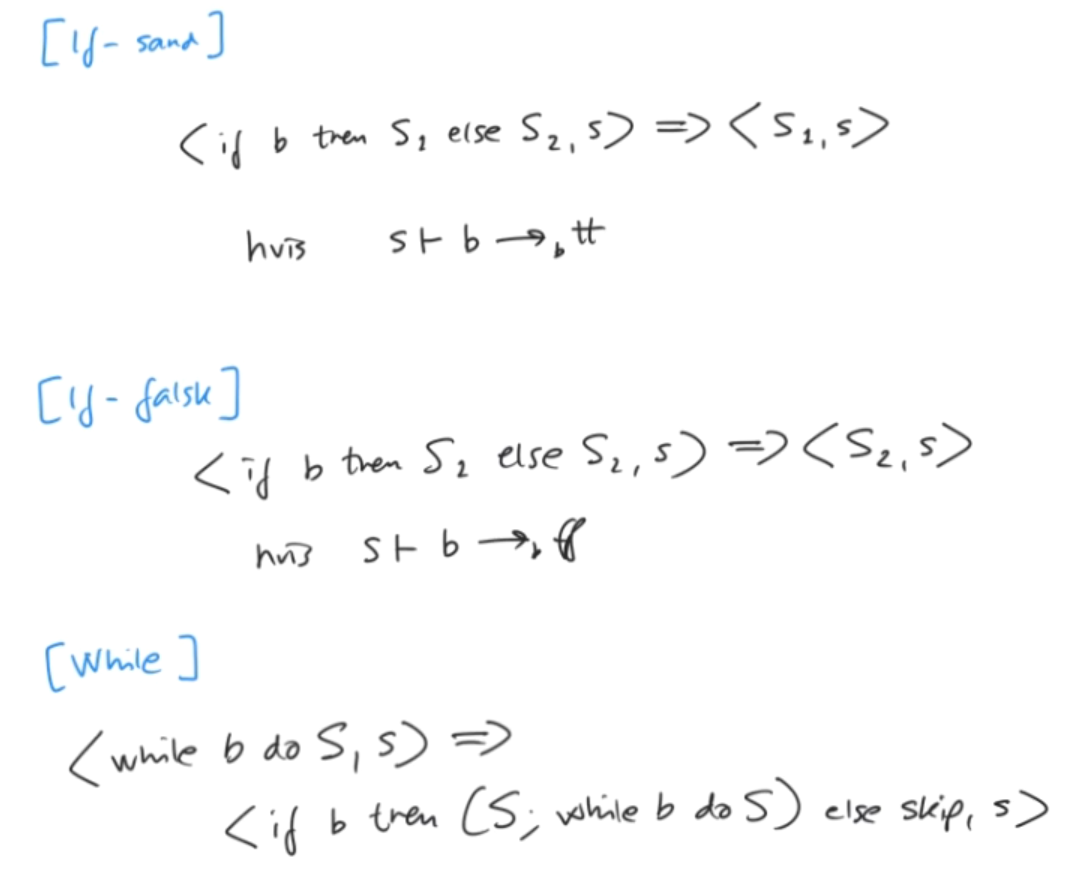 [If-sand]
<if b then S₁ else S₂, s> => <S₁, s>
hvis s ⊢ b →b tt
[If-falsk]
<if b then S₂ else S₂, s> => <S₂, s>
hvis s ⊢ b →b ff
[While]
<while b do S, s> =>
<if b then (S; while b do S) else skip, s>